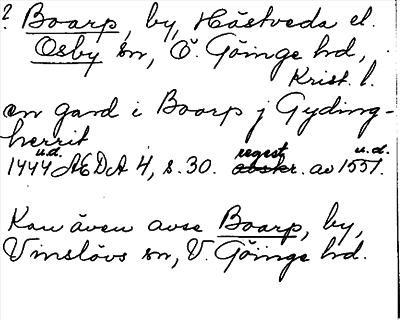 ? Boarp, by, Hästveda el.
Osby sn, Ö. Göinge hd,
Krist. l.
en gard i Boarp j Gyding-
herrit
1444 u.d. ÆDA 4, s. 30. regest av 1551. u.d.
Kan även avse Boarp, by,
Vinslövs sn, V. Göinge hd.